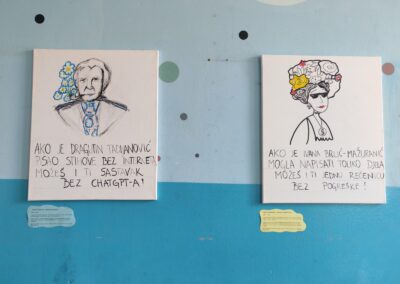 AKO JE DRAGUTIN TADIJANOVIĆ
PISAO STIHOVE BEZ INTERNETA
MOŽEŠ I TI SASTAVAK
BEZ CHATGPT-A!
AKO JE IVANA BRLIĆ-MAŽURANIĆ
MOGLA NAPISATI TOLIKO DJELA
MOŽEŠ I TI JEDNU REČENICU
BEZ POGREŠKE!